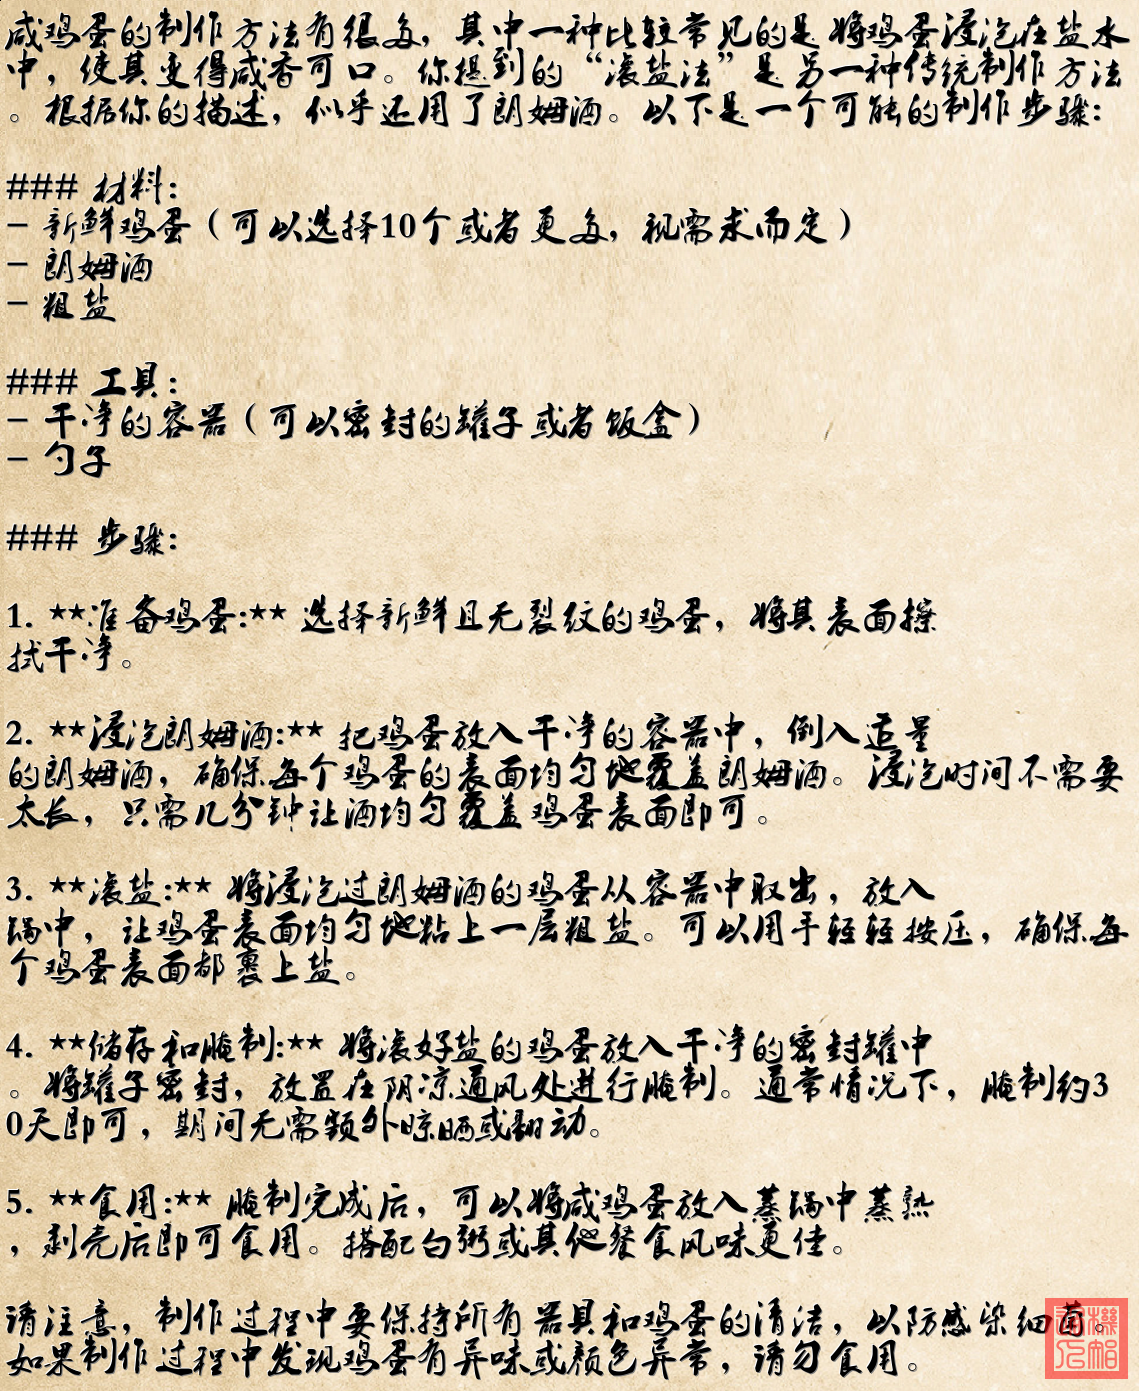 咸鸡蛋的制作方法有很多，其中一种比较常见的是将鸡蛋浸泡在盐水
中，使其变得咸香可口。你提到的“滚盐法”是另一种传统制作方法
。根据你的描述，似乎还用了朗姆酒。以下是一个可能的制作步骤：
### 材料：
- 新鲜鸡蛋（可以选择10个或者更多，视需求而定）
- 朗姆酒
- 粗盐
### 工具：
- 干净的容器（可以密封的罐子或者饭盒）
- 勺子
### 步骤：
1. **准备鸡蛋:** 选择新鲜且无裂纹的鸡蛋，将其表面擦
拭干净。
2. **浸泡朗姆酒:** 把鸡蛋放入干净的容器中，倒入适量
的朗姆酒，确保每个鸡蛋的表面均匀地覆盖朗姆酒。浸泡时间不需要
太长，只需几分钟让酒均匀覆盖鸡蛋表面即可。
3. **滚盐:** 将浸泡过朗姆酒的鸡蛋从容器中取出，放入
锅中，让鸡蛋表面均匀地粘上一层粗盐。可以用手轻轻按压，确保每
个鸡蛋表面都裹上盐。
4. **储存和腌制:** 将滚好盐的鸡蛋放入干净的密封罐中
。将罐子密封，放置在阴凉通风处进行腌制。通常情况下，腌制约3
0天即可，期间无需额外晾晒或翻动。
5. **食用:** 腌制完成后，可以将咸鸡蛋放入蒸锅中蒸熟
，剥壳后即可食用。搭配白粥或其他餐食风味更佳。
请注意，制作过程中要保持所有器具和鸡蛋的清洁，以防感染细菌。
如果制作过程中发现鸡蛋有异味或颜色异常，请勿食用。